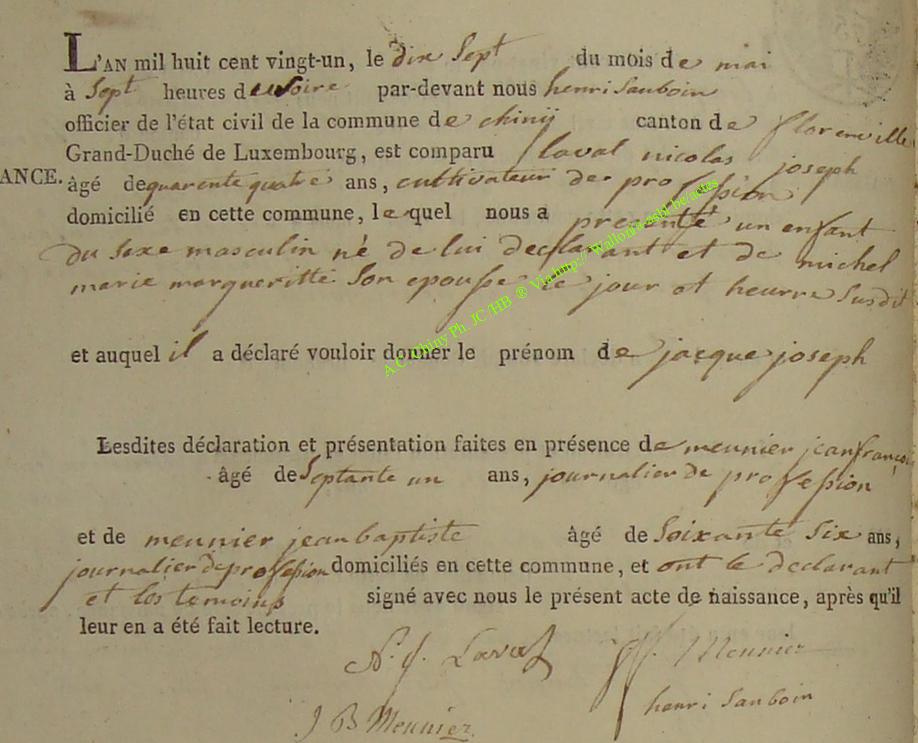 L'AN mil huit cent vingt-un, le dix Sept du mois de mai
à Sept heures de Soire par-devant nous henri Sauboin
officier de l'état civil de la commune de chinij canton de florenville
Grand-Duché de Luxembourg, est comparu laval nicolas joseph
ANCE. âgé de quarente quatre ans, cultivateur de profession
domicilié en cette commune, lequel nous a presenté un enfant
du Sexe masculin né de lui declarant et de michel
marie margueritte Son epousse ce jour et heurre Susdit
et auquel il a déclaré vouloir donner le prénom de jacque joseph
Lesdites déclaration et présentation faites en présence de meunier jean françois
âgé de Septante un ans, journalier de profession
et de meunier jean baptiste âgé de Soixante Six ans,
journalier de profession domiciliés en cette commune, et ont le declarant
et les temoins signé avec nous le présent acte de naissance, après qu'il
leur en a été fait lecture.
N. J. Laval JF. Meunier
henri Sauboin
J B Meunier
A.C. Chiny Ph. JC/HB ® Via http://Wallonia.asbl.be/actes